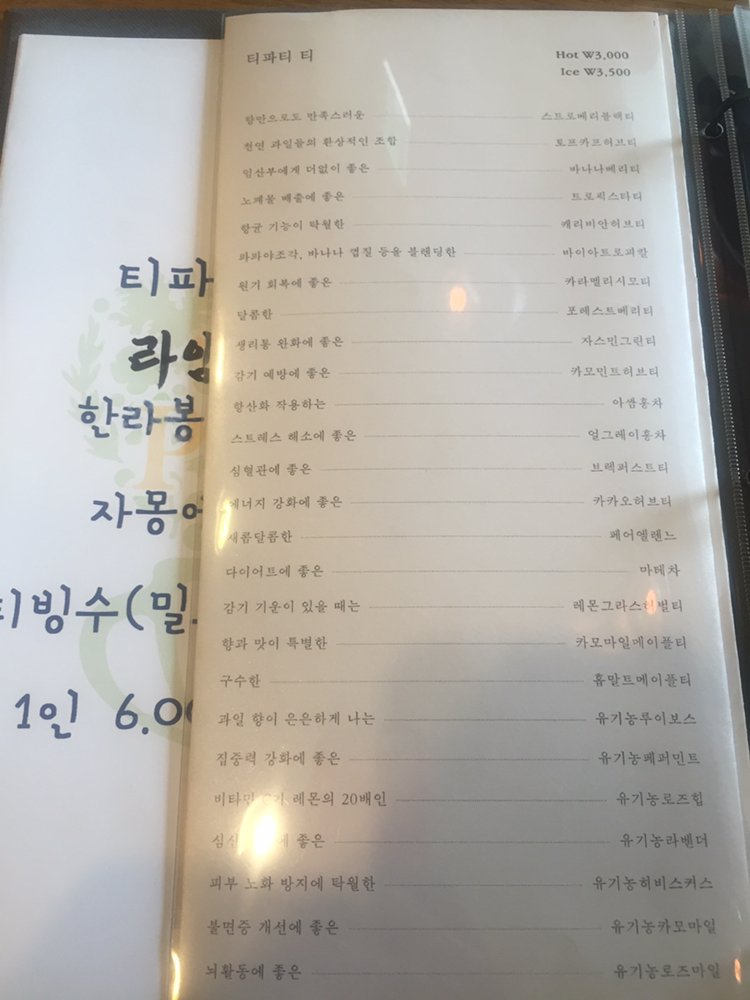 티파
라임
한라봉
자몽에
티빙수(밀
1인 6.00
티파티 티
Hot ₩3,000
Ice ₩3,500
향만으로도 만족스러운 스트로베리블랙티
천연 과일들의 환상적인 조합 토프카프허브티
임산부에게 더없이 좋은 바나나베리티
노폐물 배출에 좋은 트로픽스타티
항균 기능이 탁월한 캐리비안허브티
파파야조각, 바나나 껍질 등을 블렌딩한 바이아트로피칼
원기 회복에 좋은 카라멜리시모티
달콤한 포레스트베리티
생리통 완화에 좋은 자스민그린티
감기 예방에 좋은 카모민트허브티
항산화 작용하는 아쌈홍차
스트레스 해소에 좋은 얼그레이홍차
심혈관에 좋은 브렉퍼스트티
에너지 강화에 좋은 카카오허브티
새콤달콤한 페어엘렌느
다이어트에 좋은 마테차
감기 기운이 있을 때는 레몬그라스허벌티
향과 맛이 특별한 카모마일메이플티
구수한 홉말트메이플티
과일 향이 은은하게 나는 유기농루이보스
집중력 강화에 좋은 유기농페퍼민트
비타민 레몬의 20배인 유기농로즈힙
심신 좋은 유기농라벤더
피부 노화 방지에 탁월한 유기농허비스커스
불면증 개선에 좋은 유기농카모마일
뇌활동에 좋은 유기농로즈마일